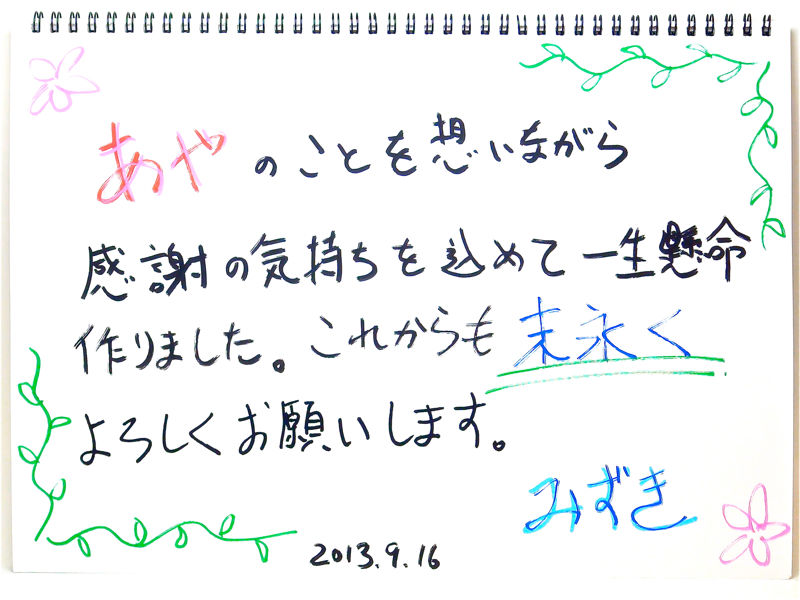 あやのことを想いながら
感謝の気持ちを込めて一生懸命
作りました。これからも末永く
よろしくお願いします。
みずき
2013.9.16